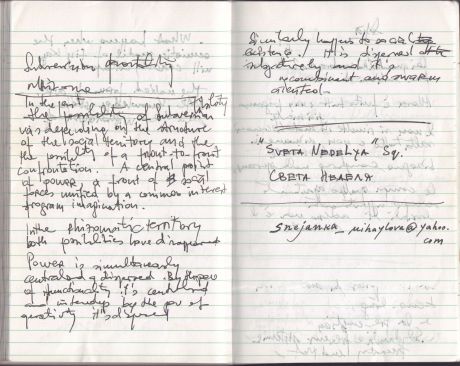 Subversion possibility
In the past
the possibility of subversion
was depending on the structure
of the social territory and the
the possibility of a front-to-front
confrontation. A central point
of power, a front of social
forces unified by a common interest
program imagination.
In the rhizomatic territory
both possibilities have disappeared
Power is simultaneously
centralized & dispersed. By the pow
of functionality it's centralized
and by the pow of
it's dispersed
Similarly happens to social
existence. It is dispersed
subjectively and it's
recombinant and swarm
oriented.
"SVETA NEDELYA" Sq.
СВЕТА НЕДЕЛЯ
snejanka_mihaylova@yahoo.
com